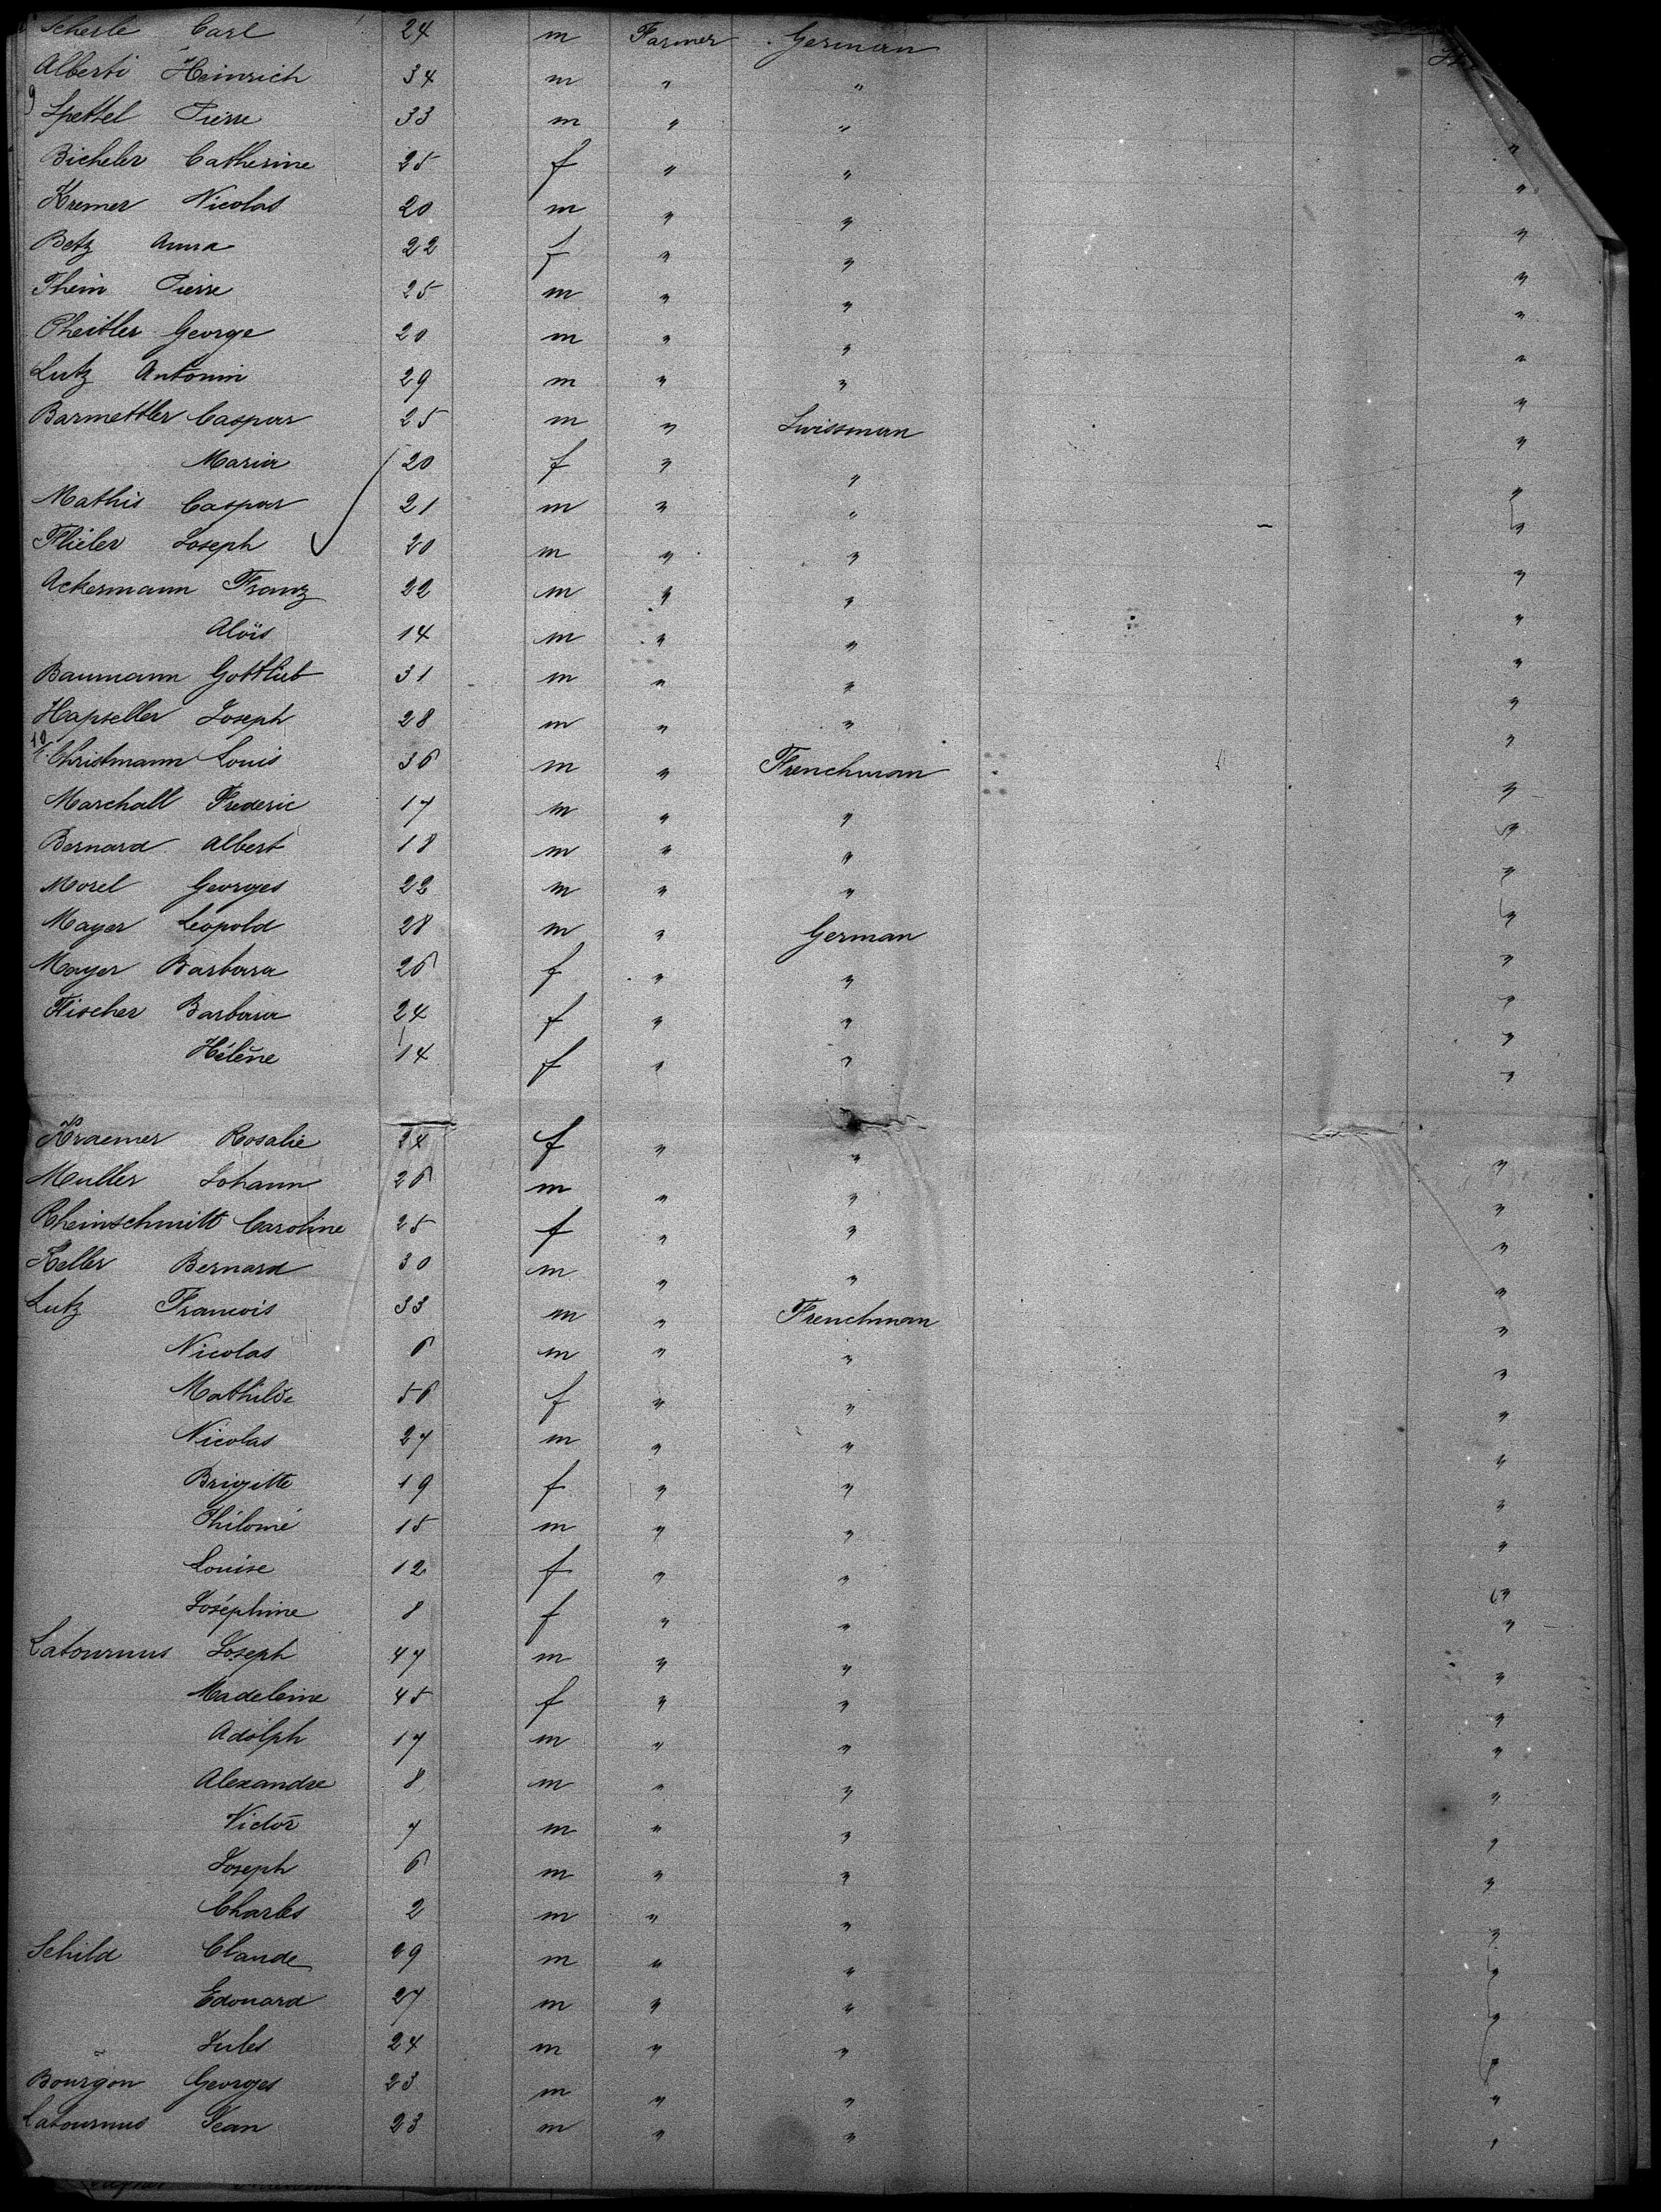 Scherle Carl 24 m Farmer German
Alberti Heinrich 34 m " "
9 Spettel Pierre 33 m " " "
Bicheler Catherine 25 f " " "
Kremer Nicolas 20 m " " "
Betz Anna 22 f " " "
Thein Pierre 25 m " " "
Pheitler George 20 m " " "
Lutz Antonin 29 m " " "
Barmettler Caspar 25 m " Swissman "
Maria 20 f " " "
Mathis Caspar 21 m " " "
Flieler Joseph 20 m " " "
Ackermann Franz 22 m " " "
Aloïs 14 m " " "
Baumann Gottlieb 31 m " " "
Hapseller Joseph 28 m " " "
10 Christmann Louis 36 m " Frenchman "
Marchall Frederic 17 m " " "
Bernard Albert 18 m " " "
Morel Georges 22 m " " "
Mayer Leopold 28 m " German "
Mayer Barbara 26 f " " "
Fischer Barbara 24 f " " "
Hélène 14 f " " "
Kraemer Rosalie 24 f " " "
Muller Johann 26 m " " "
Rheinschmitt Caroline 25 f " " "
Keller Bernard 30 m " " "
Lutz Francois 33 m " Frenchman "
Nicolas 6 m " " "
Mathilde 56 f " " "
Nicolas 27 m " " "
Brigitte 19 f " " "
Philomé 15 m " " "
Louise 12 f " " "
Joséphine 8 f " " "
Latournus Joseph 47 m " " "
Madeleine 45 f " " "
Adolph 17 m " " "
Alexandre 8 m " " "
Victor 7 m " " "
Joseph 6 m " " "
Charles 2 m " " "
Schild Claude 29 m " " "
Edouard 27 m " " "
Jules 24 m " " "
Bourgon Georges 23 m " " "
Latournus Jean 23 m " " "